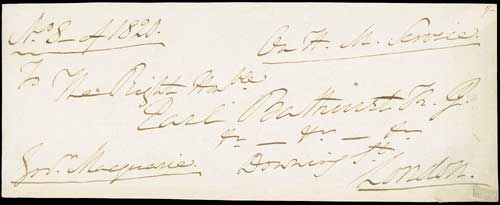 No. 8 of 1820.
On H. M. Service.
To The Right Hoñble.
Earl Bathurst K. G.
&c. — &c. — &c.
Govr. Macquarie.
Downing St.
London.